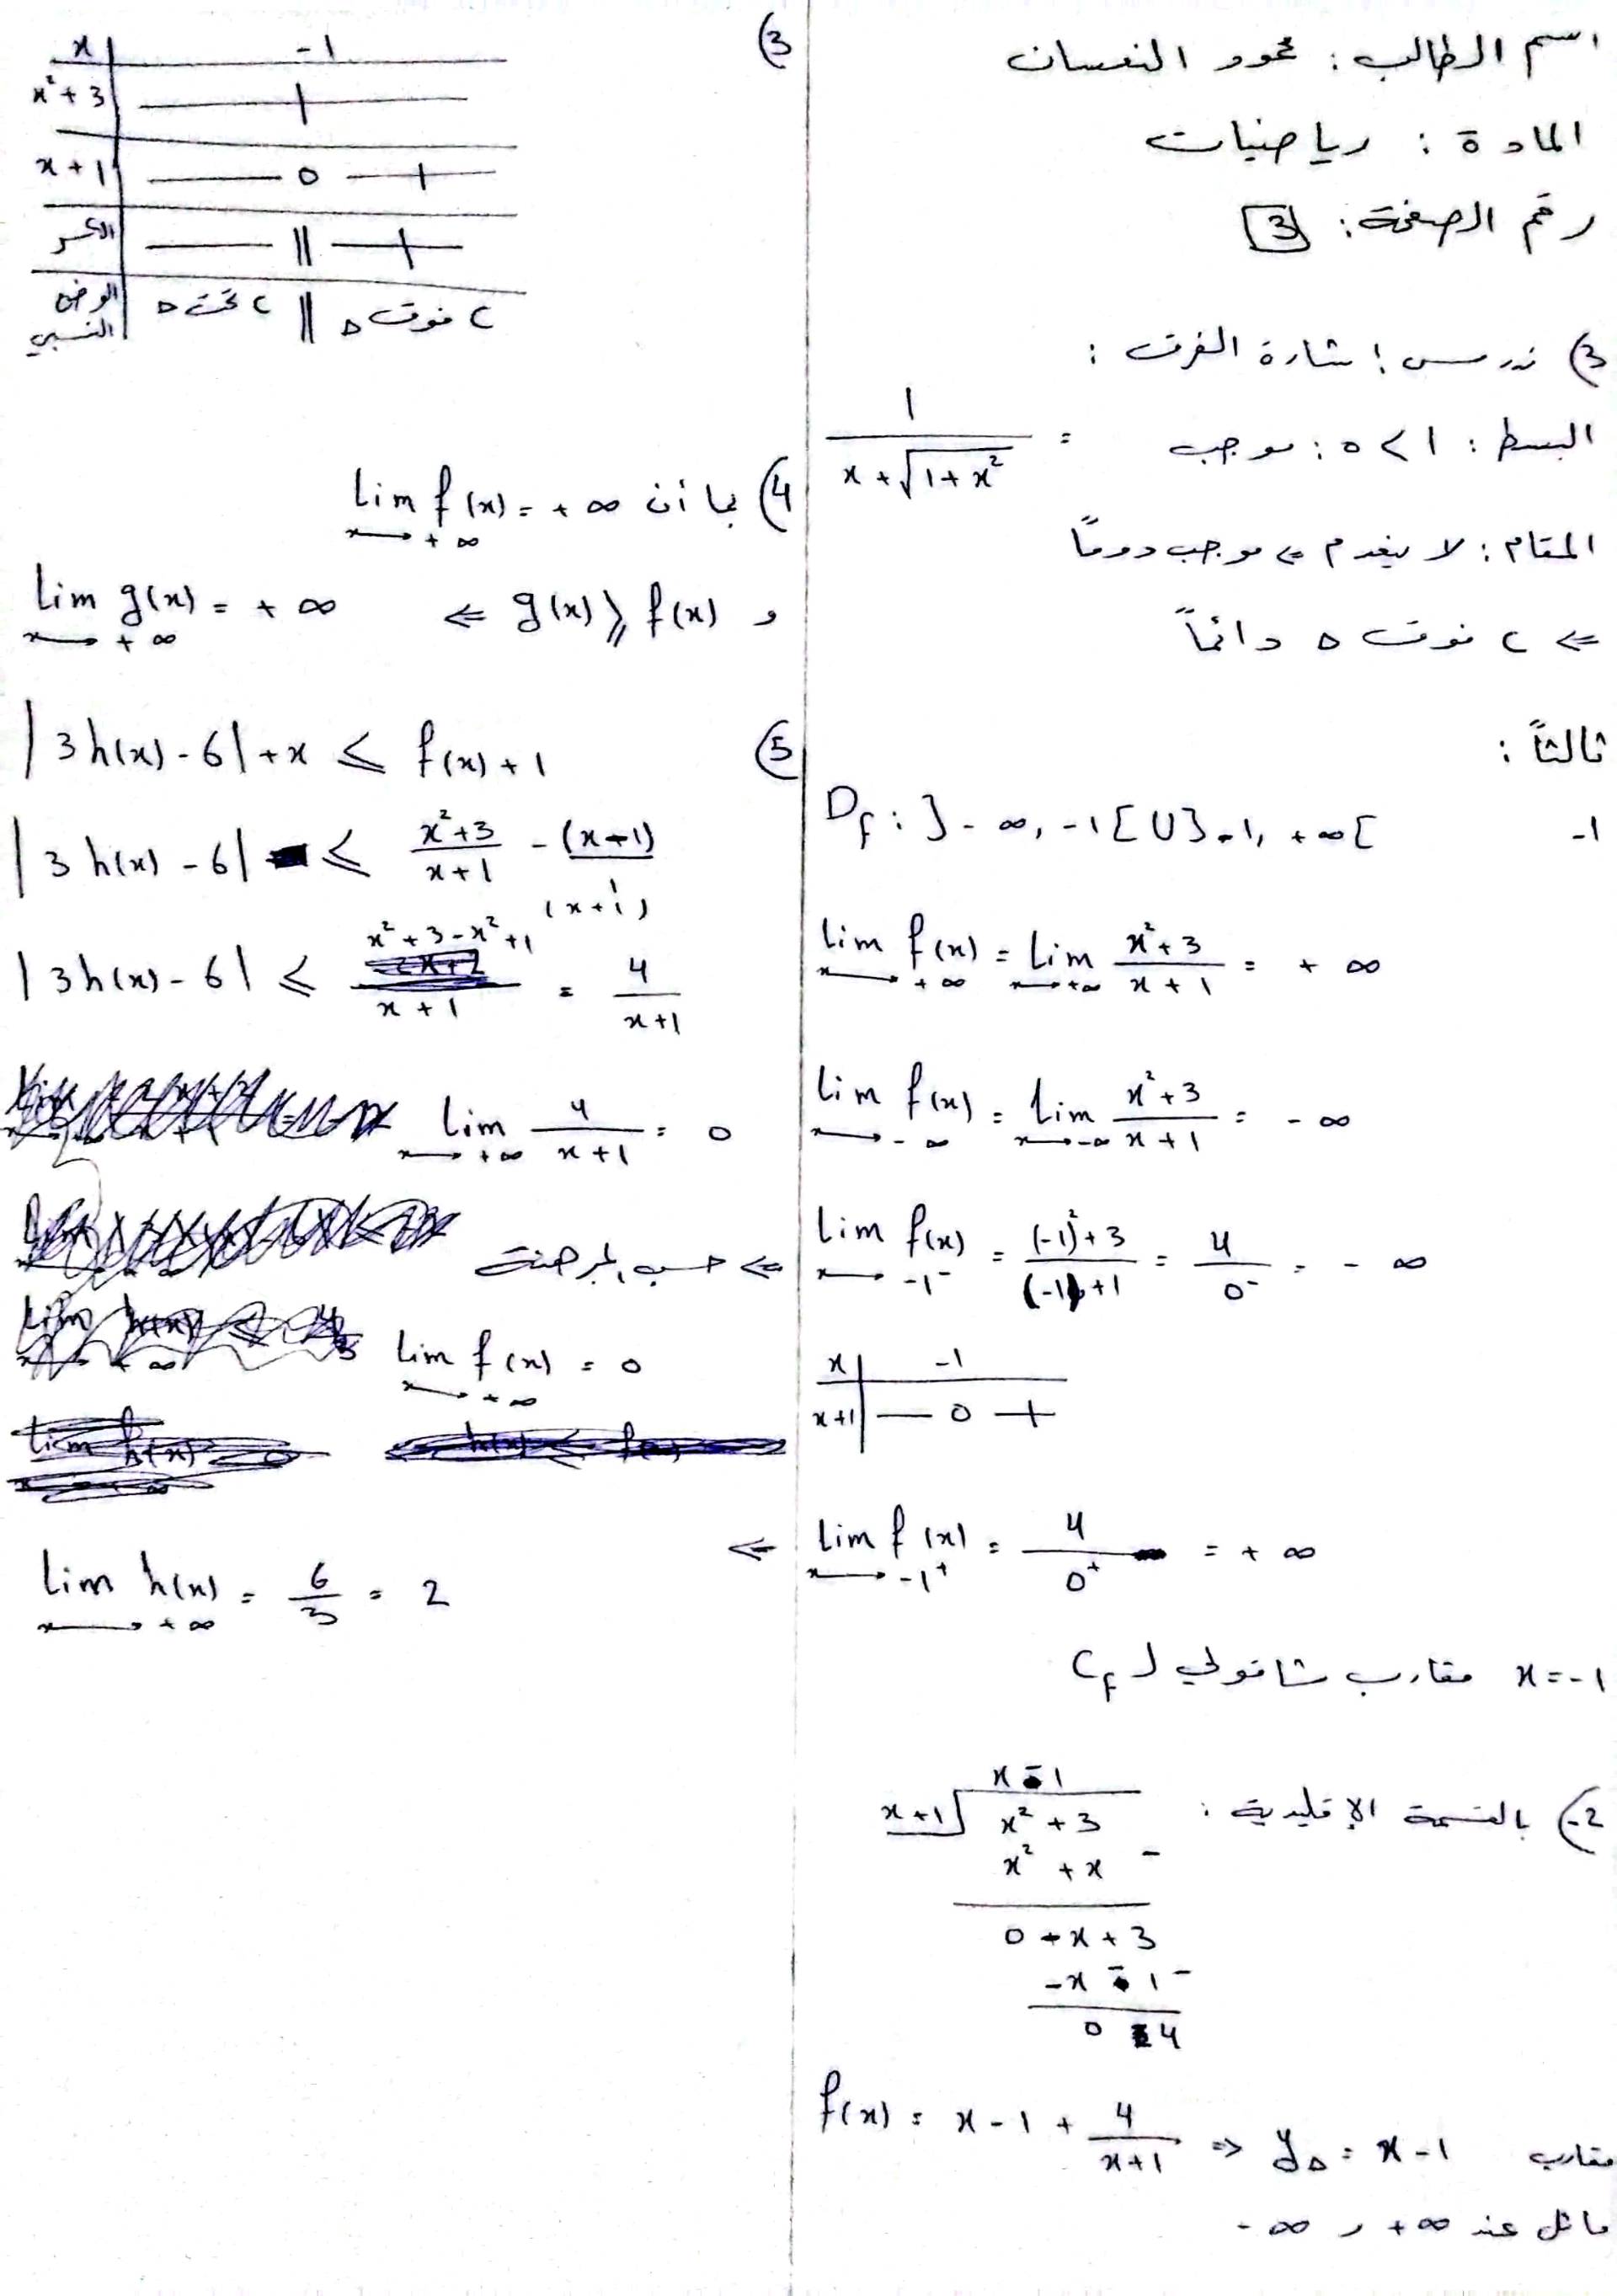 اسم الطالب: محمود النعسان
المادة: رياضيات
رقم الصفحة: 3
3) ندرس إشارة الفرق:
البسط: 1 > 0: موجب = 1 / (x + √(1 + x²))
المقام: لا ينعدم ⇐ موجب دوماً
⇐ C فوق Δ دائماً
ثالثاً:
1- D_f : ]-∞, -1[ U ]-1, +∞[
lim_{x→+∞} f(x) = lim_{x→+∞} (x²+3)/(x+1) = +∞
lim_{x→-∞} f(x) = lim_{x→-∞} (x²+3)/(x+1) = -∞
lim_{x→-1⁻} f(x) = ((-1)²+3)/((-1)+1) = 4/0⁻ = -∞
x | -1
x+1 | — 0 +
lim_{x→-1⁺} f(x) = 4/0⁺ = +∞ ⇐
x = -1 مقارب شاقولي لـ C_f
2-) بالقسمة الإقليدية:
x - 1
x+1 | x² + 3
x² + x -
0 - x + 3
-x - 1 -
0 4
f(x) = x - 1 + 4/(x+1) ⇒ y_Δ = x - 1 مقارب
مائل عند +∞ و -∞
3)
x | -1
x² + 3 | +
x + 1 | — 0 +
الكسر | — || +
الوضع النسبي | C تحت Δ || C فوق Δ
4) بما أن lim_{x→+∞} f(x) = +∞
و g(x) ≥ f(x) ⇐ lim_{x→+∞} g(x) = +∞
5) |3h(x) - 6| + x ≤ f(x) + 1
|3h(x) - 6| ≤ (x²+3)/(x+1) - (x-1)(x+1)
|3h(x) - 6| ≤ (x² + 3 - x² + 1)/(x+1) = 4/(x+1)
lim_{x→+∞} 4/(x+1) = 0
⇐ حسب المبرهنة
lim_{x→+∞} f(x) = 0
lim_{x→+∞} h(x) = 6/3 = 2